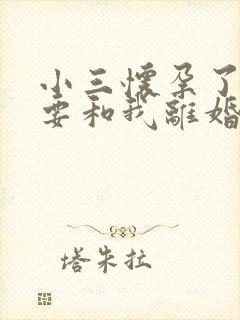 小三懷孕了
要和我離婚
塔朱拉